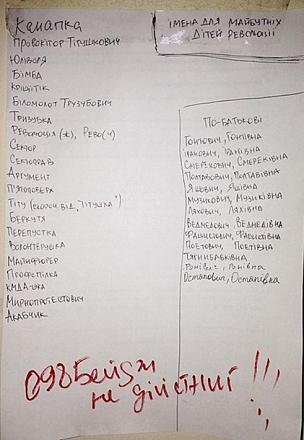 Канапка
Провокітор Тітушкович
Юліволя
Бімба
Біломолот Трузубович
Тризубка
Революція (ж), Рево(ч)
Сектор
Сектограв
Аргумент
П'ятоповерх
Тіту (скороч. від "Тітушка")
Беркутя
Перепустка
Волонтерушка
Майнофюрер
Профспілка
КМДА-шка
Мирнопротестович
Акабчик
ІМЕНА ДЛЯ МАЙБУТНІХ
ДІТЕЙ РЕВОЛЮЦІЇ
ПО-БАТЬКОВІ
Гонтович, Гонтівна
Ірпінович, Ірпінівна
Смерекович, Смереківна
Полтавович, Полтавівна
Яшович, Яшівна
Музикович, Музиківна
Ляхович, Ляхівна
Ведмедович, Ведмедівна
Фашистович, Фашистівна
Поетович, Поетівна
Тягнибаківна
Внівич, Внівна
Остапович, Остапівна
098 Бейдж
не дійстний !!!